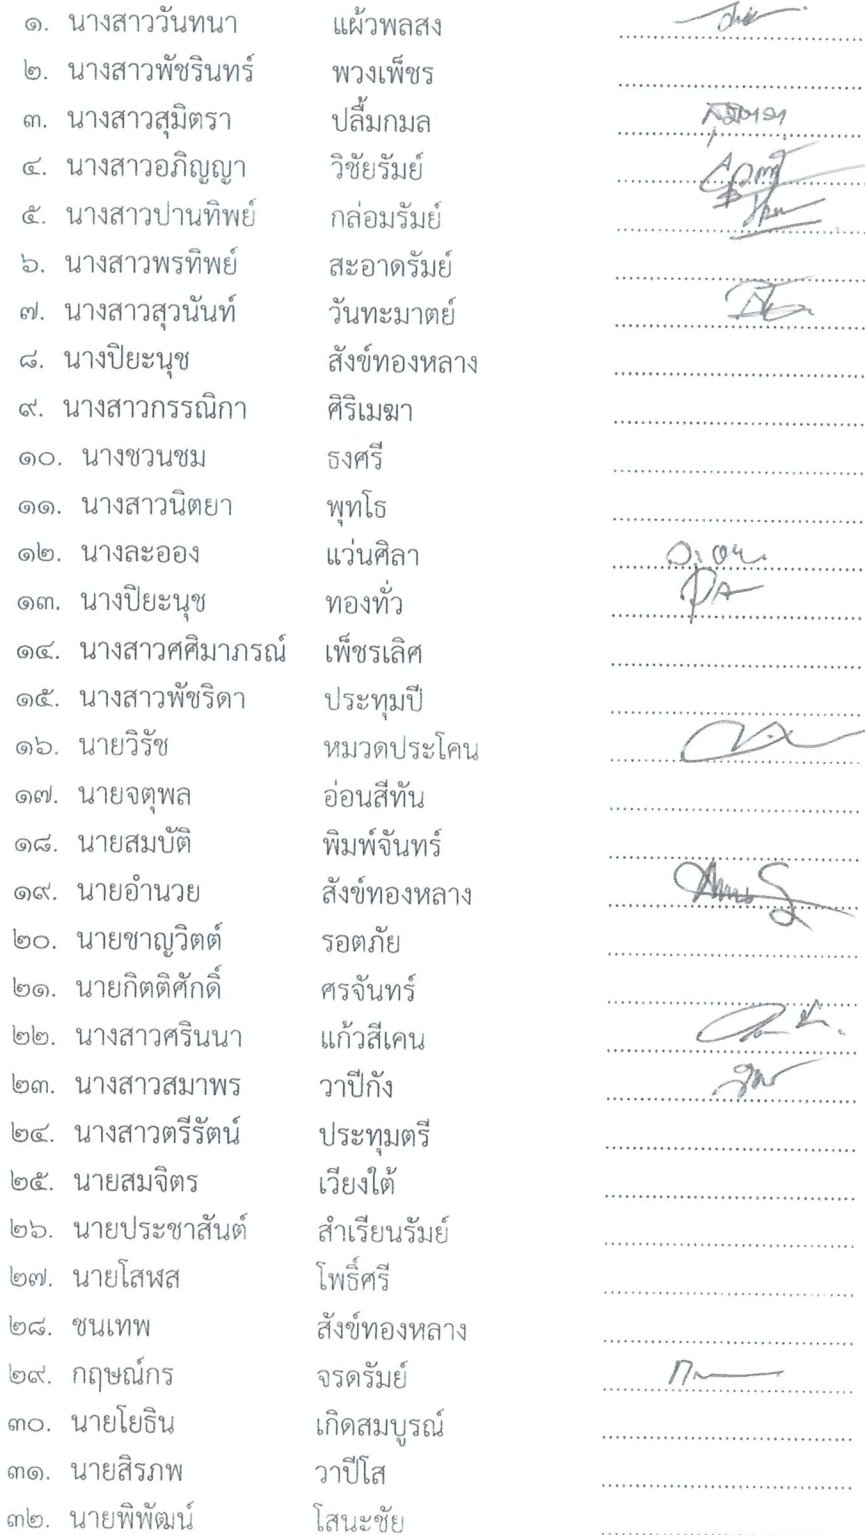 ๑. นางสาววันทนา แผ้วพลสง
๒. นางสาวพัชรินทร์ พวงเพ็ชร
๓. นางสาวสุมิตรา ปลื้มกมล
๔. นางสาวอภิญญา วิชัยรัมย์
๕. นางสาวปานทิพย์ กล่อมรัมย์
๖. นางสาวพรทิพย์ สะอาดรัมย์
๗. นางสาวสุวนันท์ วันทะมาตย์
๘. นางปิยะนุช สังข์ทองหลาง
๙. นางสาวกรรณิกา ศิริเมฆา
๑๐. นางชวนชม ธงศรี
๑๑. นางสาวนิตยา พุทโธ
๑๒. นางละออง แว่นศิลา
๑๓. นางปิยะนุช ทองทั่ว
๑๔. นางสาวศศิมาภรณ์ เพ็ชรเลิศ
๑๕. นางสาวพัชริดา ประทุมปี
๑๖. นายวิรัช หมวดประโคน
๑๗. นายจตุพล อ่อนสีทัน
๑๘. นายสมบัติ พิมพ์จันทร์
๑๙. นายอำนวย สังข์ทองหลาง
๒๐. นายชาญวิตต์ รอตภัย
๒๑. นายกิตติศักดิ์ ศรจันทร์
๒๒. นางสาวศรินนา แก้วสีเคน
๒๓. นางสาวสมาพร วาปีกัง
๒๔. นางสาวตรีรัตน์ ประทุมตรี
๒๕. นายสมจิตร เวียงใต้
๒๖. นายประชาสันต์ สำเรียนรัมย์
๒๗. นายโสฬส โพธิ์ศรี
๒๘. ชนเทพ สังข์ทองหลาง
๒๙. กฤษณ์กร จรดรัมย์
๓๐. นายโยธิน เกิดสมบูรณ์
๓๑. นายสิรภพ วาปีโส
๓๒. นายพิพัฒน์ โสนะชัย